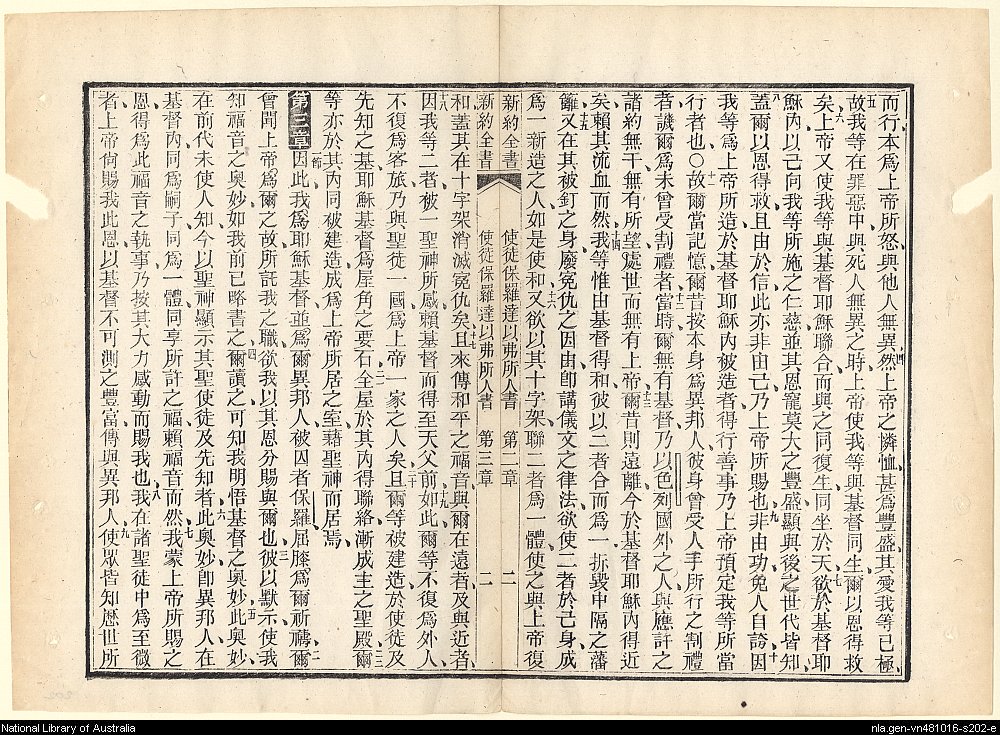 而行本爲上帝所怒與他人無異四然上帝之憐恤甚爲豐盛其愛我等已極
五故我等在罪惡中與死人無異之時上帝使我等與基督同生爾以恩得救
六矣上帝又使我等與基督耶穌聯合而與之同復生同坐於天七欲於基督耶
穌內以己向我等所施之仁慈並其恩寵莫大之豐盛顯與後之世代皆知
八蓋爾以恩得救且由於信此亦非由己乃上帝所賜也九非由功免人自誇十因
我等爲上帝所造於基督耶穌內被造者得行善事乃上帝預定我等所當
行者也〇十一故爾當記憶爾昔按本身爲異邦人彼身曾受人手所行之割禮
者譏爾爲未曾受割禮者十二當時爾無有基督乃以色列國外之人與應許之
諸約無干無有所望處世而無有上帝十三爾昔則遠離今於基督耶穌內得近
矣賴其流血而然十四我等惟由基督得和彼以二者合而爲一拆毀中隔之藩
籬十五又在其被釘之身廢冤仇之因由卽講儀文之律法欲使二者於己身成
爲一新造之人如是使和十六又欲以其十字架聯二者爲一體使之與上帝復
新約全書 使徒保羅達以弗所人書 第二章 二
新約全書 使徒保羅達以弗所人書 第三章 二
和蓋其在十字架消滅冤仇矣十七且來傳和平之福音與爾在遠者及與近者
十八因我等二者被一聖神所感賴基督而得至天父前十九如此爾等不復爲外人
不復爲客旅乃與聖徒一國爲上帝一家之人矣二十且爾等被建造於使徒及
先知之基耶穌基督爲屋角之要石二一全屋於其內得聯絡漸成主之聖殿二二爾
等亦於其內同被建造成爲上帝所居之室藉聖神而居焉
第三章一節因此我爲耶穌基督並爲爾異邦人被囚者保羅屈膝爲爾祈禱二爾
曾聞上帝爲爾之故所託我之職欲我以其恩分賜與爾也三彼以默示使我
知福音之奧妙如我前已略書之四爾讀之可知我明悟基督之奧妙五此奧妙
在前代未使人知今以聖神顯示其聖使徒及先知者六此奧妙卽異邦人在
基督內同爲嗣子同爲一體同享所許之福賴福音而然七我蒙上帝所賜之
恩得爲此福音之執事乃按其大力感動而賜我也八我在諸聖徒中爲至微
者上帝尙賜我此恩以基督不可測之豐富傳與異邦人九使眾皆知歷世所
National Library of Australia
nla.gen-vn481016-s202-e